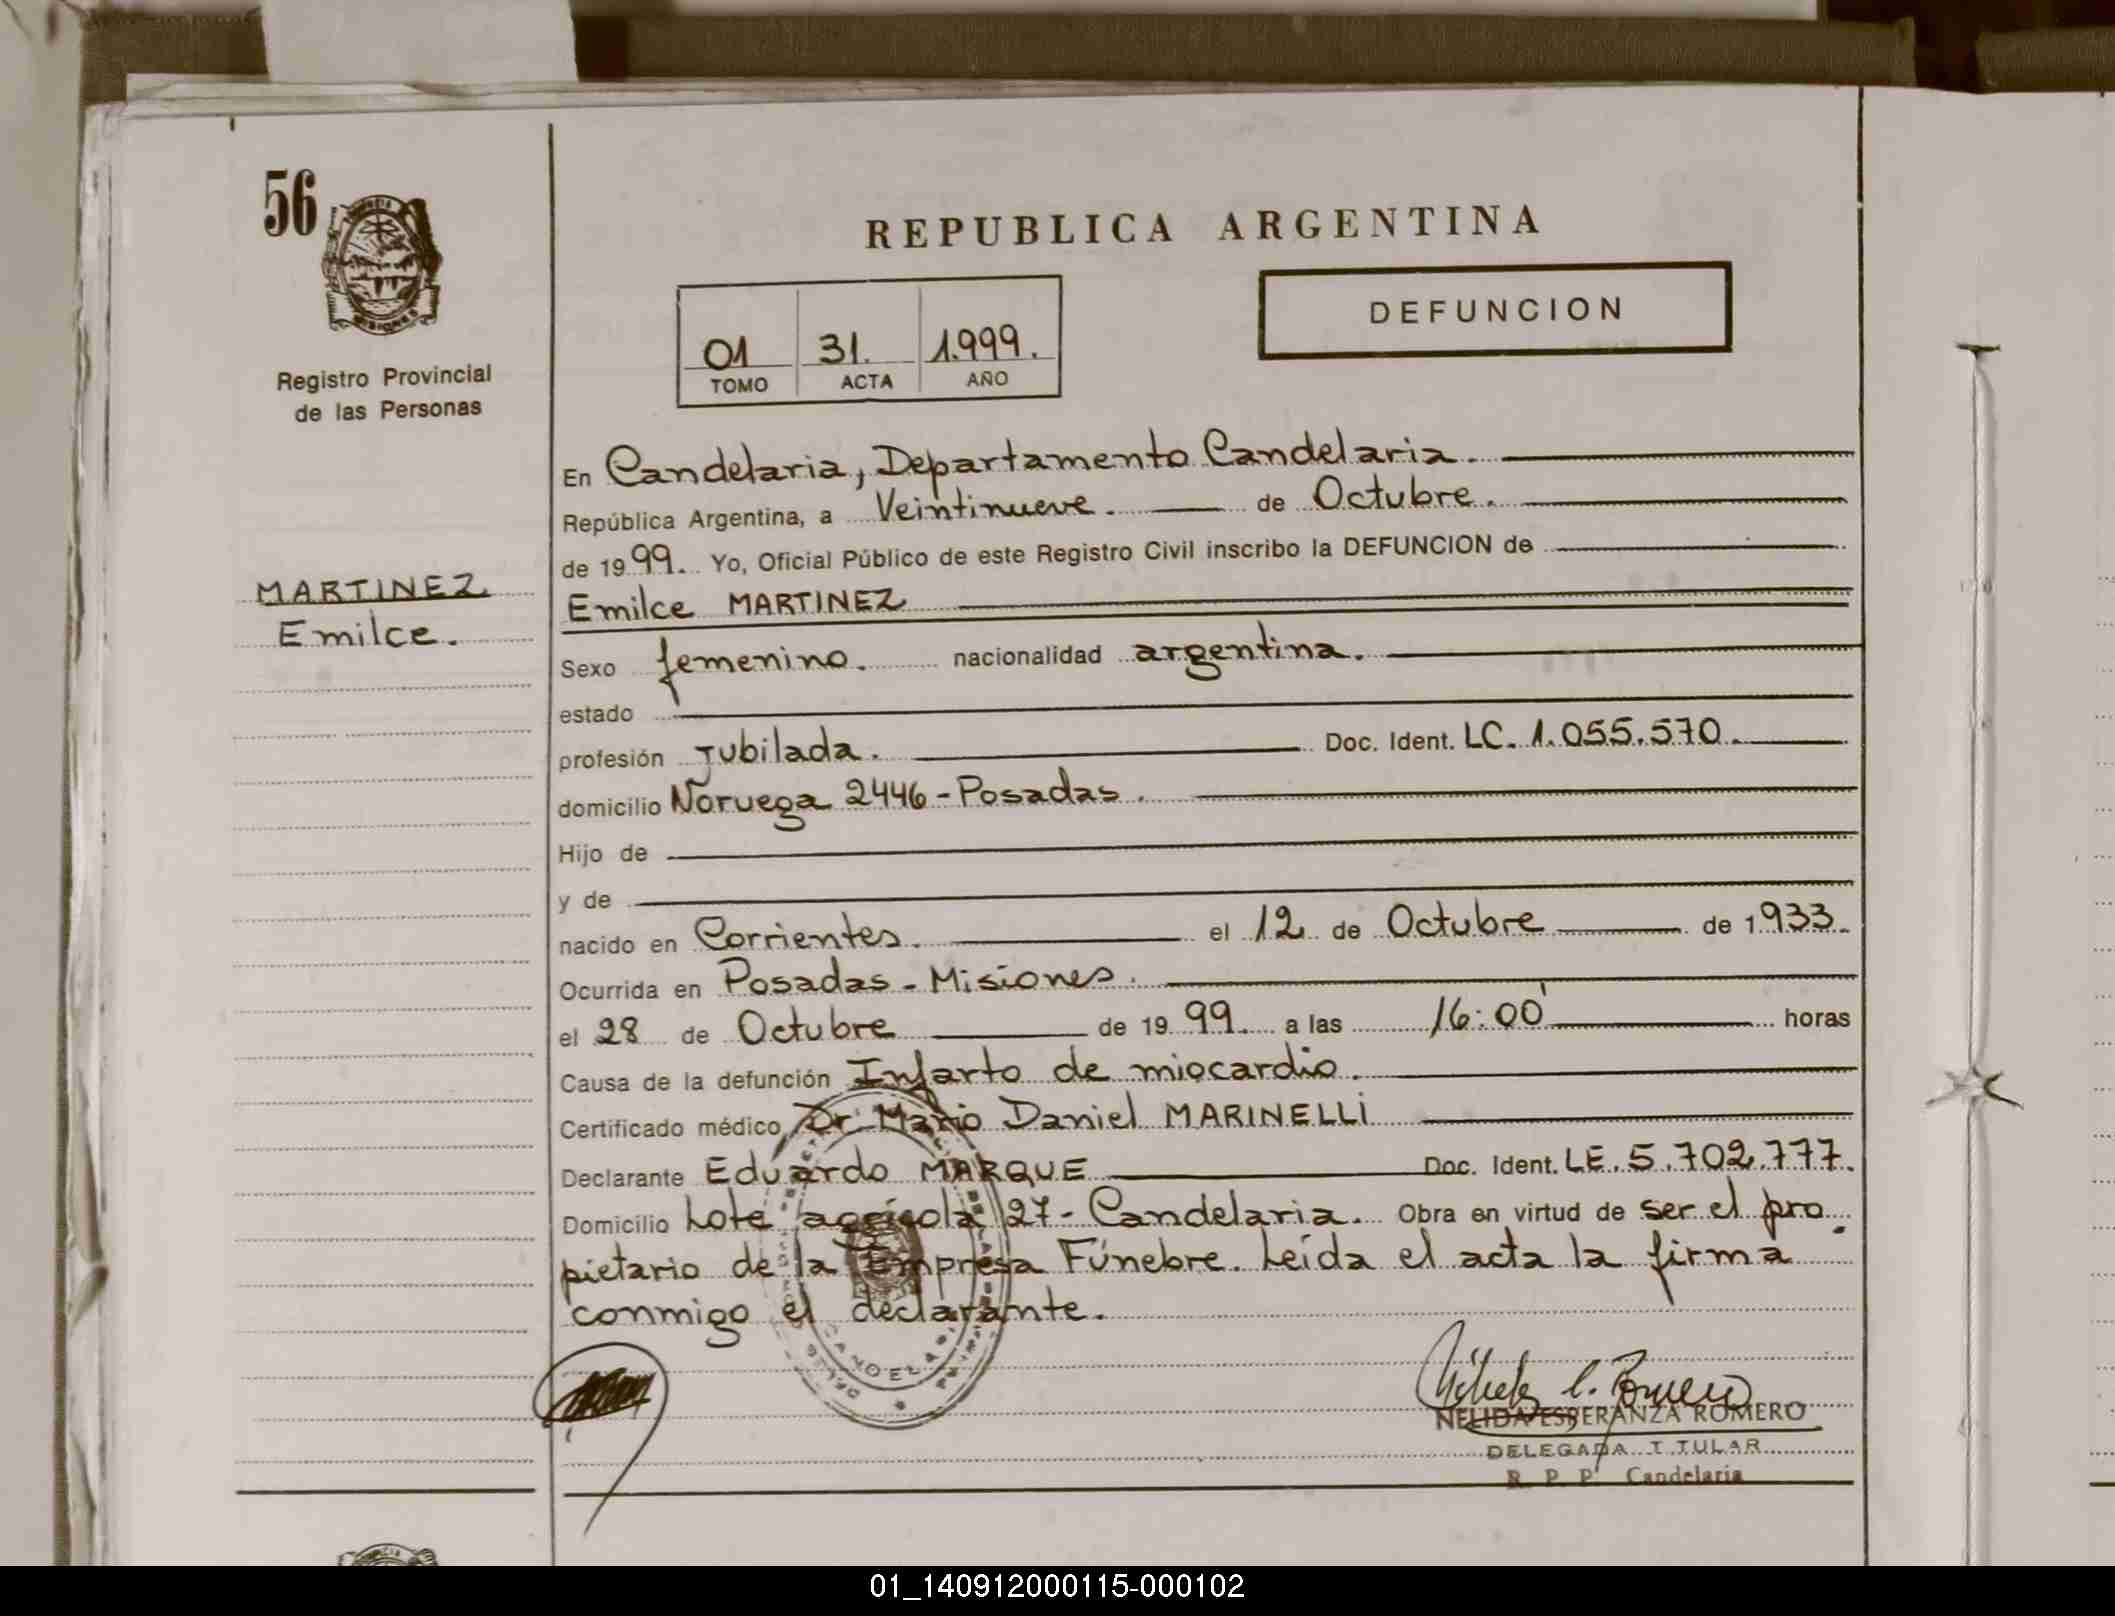 56
REPUBLICA ARGENTINA
DEFUNCION
01 31. 1.999.
TOMO ACTA AÑO
MISIONES
Registro Provincial
de las Personas
MARTINEZ
Emilce.
En Candelaria, Departamento Candelaria.
República Argentina, a Veintinueve. de Octubre.
de 1999. Yo, Oficial Público de este Registro Civil inscribo la DEFUNCION de
Emilce MARTINEZ
Sexo femenino. nacionalidad argentina.
estado
profesión Jubilada. Doc. Ident. LC. 1.055.570.
domicilio Noruega 2446 - Posadas.
Hijo de
y de
nacido en Corrientes. el 12 de Octubre de 1933.
Ocurrida en Posadas - Misiones.
el 28 de Octubre de 1999. a las 16:00' horas
Causa de la defunción Infarto de miocardio.
Certificado médico Dr. Mario Daniel MARINELLI
Declarante Eduardo MARQUE Doc. Ident. LE. 5.702.777.
Domicilio Lote agrícola 27 - Candelaria. Obra en virtud de ser el pro
pietario de la Empresa Fúnebre. Leída el acta la firma
conmigo el declarante.
NELIDA ESPERANZA ROMERO
DELEGADA TITULAR
R. P. P. Candelaria
01_140912000115-000102